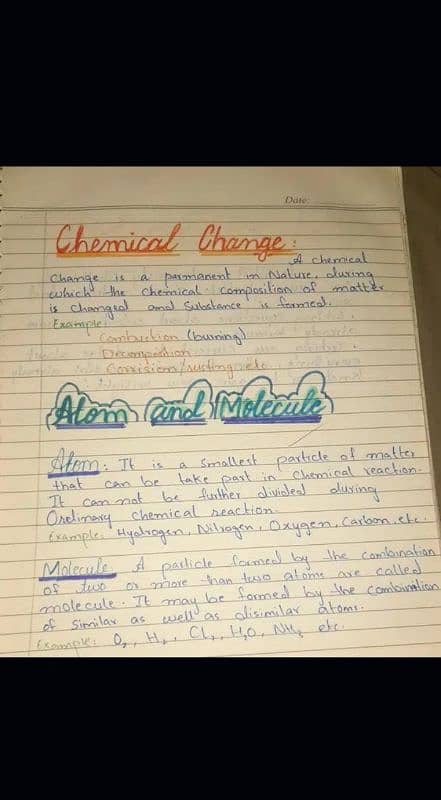 Date:
Chemical Change:
A chemical
Change is a parmanent in Nature, during
which the chemical composition of matter
is changed and Substance is formed.
Example:
Combustion (burning)
Decomposition
Corrision/rusting etc.
Atom and Molecule
Atom: It is a smallest particle of matter
that can be take part in chemical reaction.
It can not be further divided during
Ordinary chemical reaction.
Example: Hydrogen, Nitrogen, Oxygen, Carbon, etc.
Molecule A particle formed by the combination
of two or more than two atoms are called
molecule. It may be formed by the combination
of similar as well as disimilar atoms.
Example: O₂, H₂, Cl₂, H₂O, NH₃ etc.